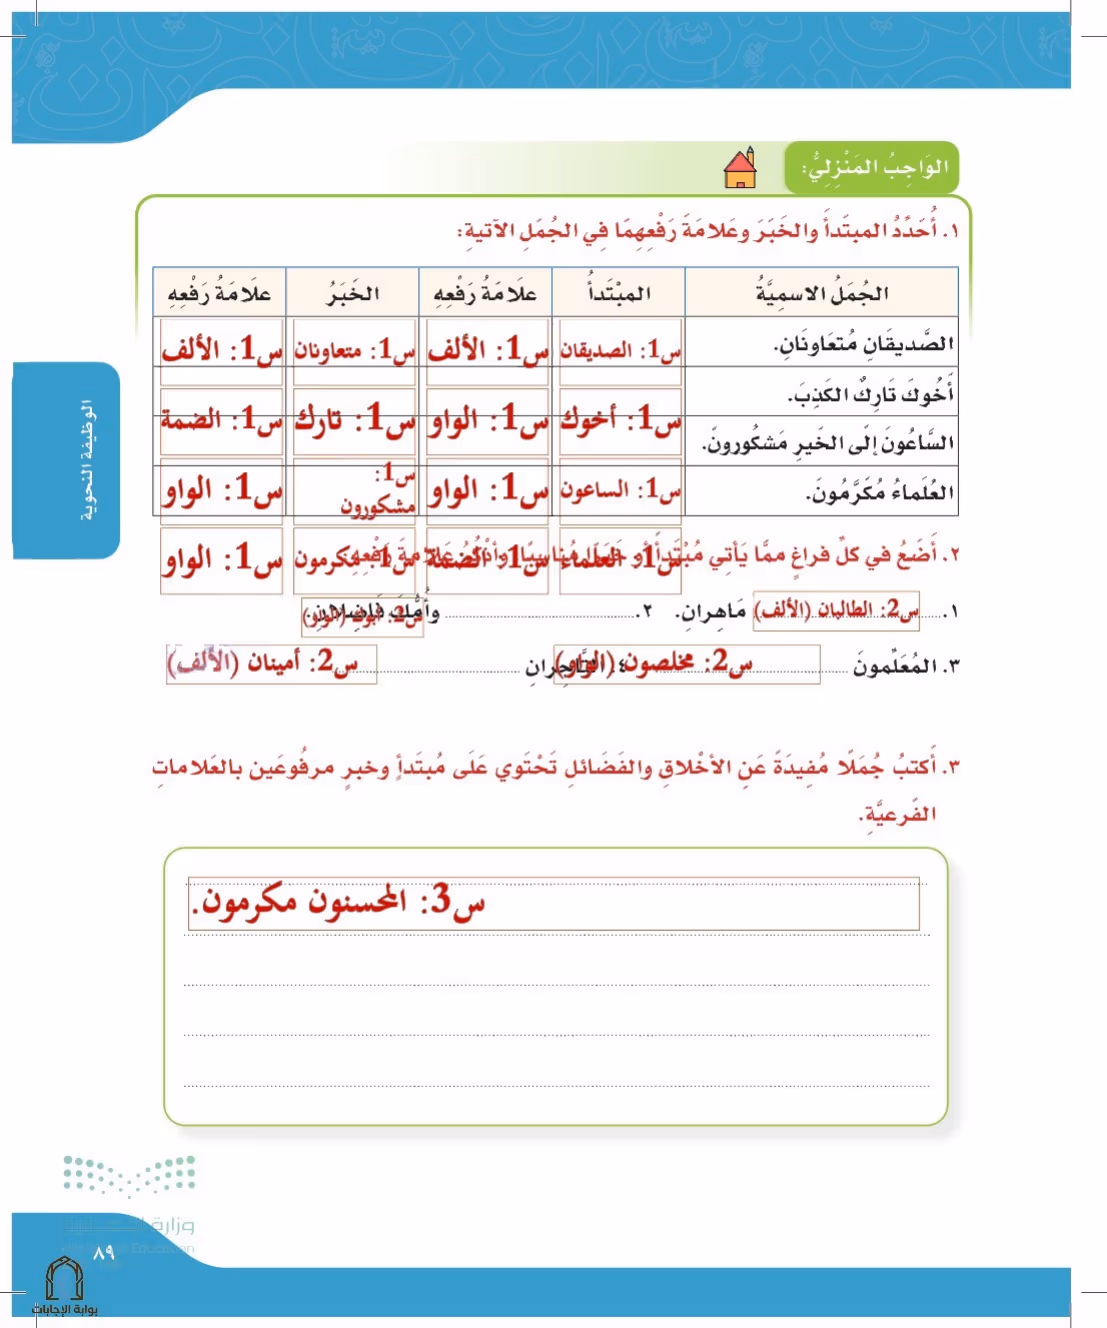 الوَاجِبُ المَنْزِلِيُّ:
١. أُحَدِّدُ المبتَدأَ والخَبَرَ وعَلامَةَ رَفْعِهِمَا فِي الجُمَلِ الآتيةِ:
الجُمَلُ الاسمِيَّةُ المبْتَدأُ عَلامَةُ رَفْعِهِ الخَبَرُ عَلامَةُ رَفْعِهِ
الصَّديقَانِ مُتعَاونَانِ. س1: الصديقان س1: الألف س1: متعاونان س1: الألف
أَخُوكَ تَارِكٌ الكَذِبَ. س1: أخوك س1: الواو س1: تارك س1: الضمة
السَّاعُونَ إلَى الخَيرِ مَشكُورونَ. س1: الساعون س1: الواو س1: مشكورون س1: الواو
العُلَماءُ مُكَرَّمُونَ. س1: العلماء س1: الضمة س1: مكرمون س1: الواو
٢. أَضَعُ في كلِّ فراغٍ ممَّا يَأتِي مُبْتَدأً أو خَبَرًا مُناسِبًا، وأذْكُرُ عَلامةَ رَفْعِهِ:
١. س2: الطالبان (الألف) مَاهِرانِ. ٢. وأُمُّكَ فَاضِلانِ. س2: أبوك (الواو)
٣. المُعَلِّمونَ س2: مخلصون (الواو) ٤. التَّاجِرانِ س2: أمينان (الألف)
٣. أَكتبُ جُمَلًا مُفِيدَةً عَنِ الأخْلاقِ والفَضَائلِ تَحْتَوي عَلَى مُبتَدأٍ وخبرٍ مرفُوعَين بالعَلاماتِ
الفَرعيَّةِ.
س3: المحسنون مكرمون.
الوظيفة النحوية
وزارة التعليم
٨٩
بوابة الإجابات